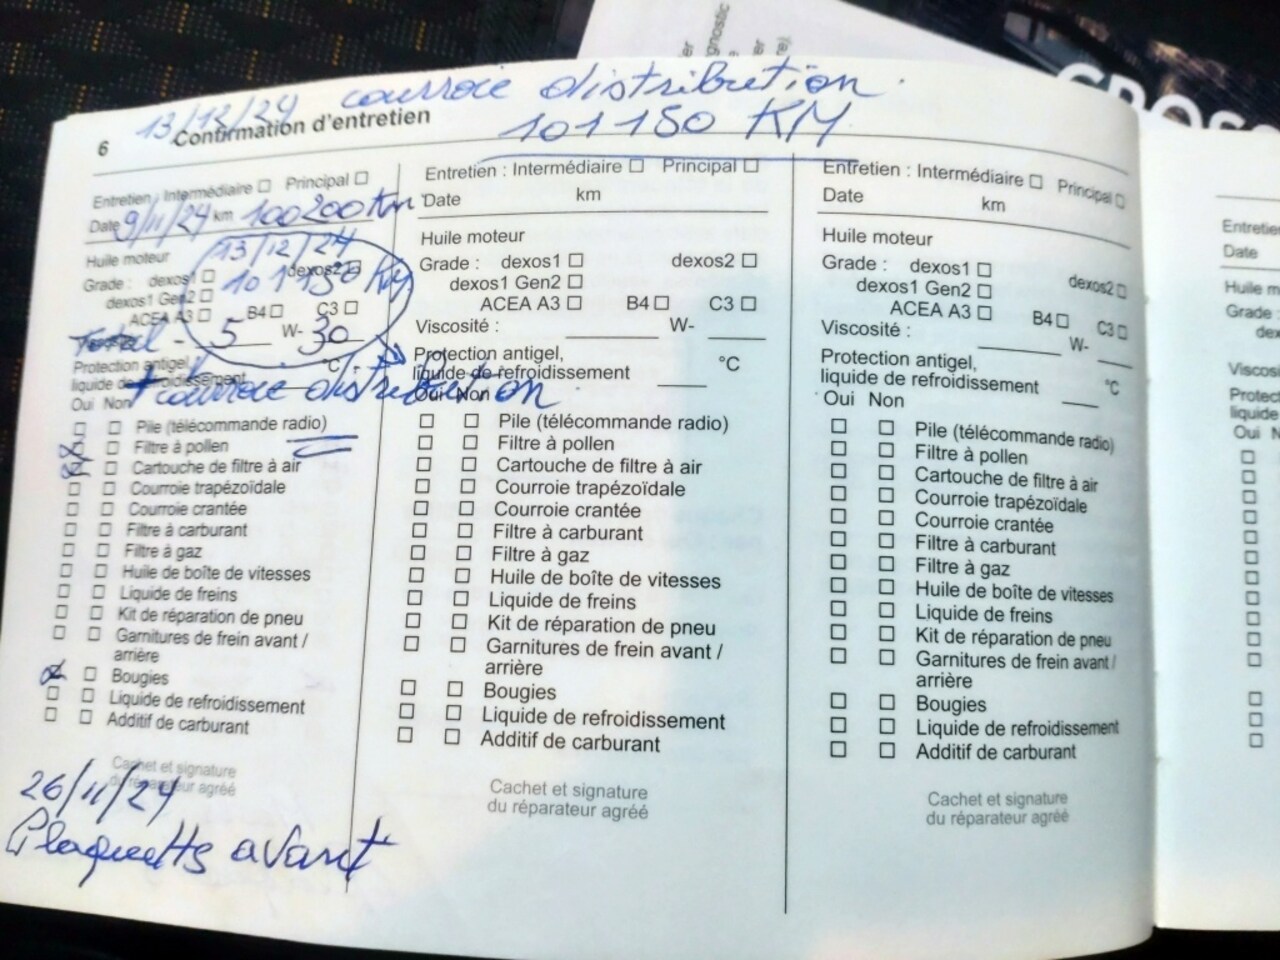 13/12/24 courroie distribution
101150 KM
6 Confirmation d'entretien
Entretien : Intermédiaire Principal
Date 9/11/24 km 100200 Km
Huile moteur
13/12/24
Grade : dexos1 dexos2
101150 KM
dexos1 Gen2
ACEA A3 B4 C3
Total - 5 W- 30
Protection antigel, °C
liquide de refroidissement
+ courroie distribution
Oui Non
Pile (télécommande radio)
Filtre à pollen
Cartouche de filtre à air
Courroie trapézoïdale
Courroie crantée
Filtre à carburant
Filtre à gaz
Huile de boîte de vitesses
Liquide de freins
Kit de réparation de pneu
Garnitures de frein avant /
arrière
Bougies
Liquide de refroidissement
Additif de carburant
Cachet et signature
du réparateur agréé
26/11/24
Plaquetts avant
Entretien : Intermédiaire Principal
Date km
Huile moteur
Grade : dexos1 dexos2
dexos1 Gen2
ACEA A3 B4 C3
Viscosité : W-
Protection antigel,
liquide de refroidissement °C
Oui Non
Pile (télécommande radio)
Filtre à pollen
Cartouche de filtre à air
Courroie trapézoïdale
Courroie crantée
Filtre à carburant
Filtre à gaz
Huile de boîte de vitesses
Liquide de freins
Kit de réparation de pneu
Garnitures de frein avant /
arrière
Bougies
Liquide de refroidissement
Additif de carburant
Cachet et signature
du réparateur agréé
Entretien : Intermédiaire Principal
Date km
Huile moteur
Grade : dexos1 dexos2
dexos1 Gen2
ACEA A3 B4 C3
Viscosité : W-
Protection antigel,
liquide de refroidissement °C
Oui Non
Pile (télécommande radio)
Filtre à pollen
Cartouche de filtre à air
Courroie trapézoïdale
Courroie crantée
Filtre à carburant
Filtre à gaz
Huile de boîte de vitesses
Liquide de freins
Kit de réparation de pneu
Garnitures de frein avant /
arrière
Bougies
Liquide de refroidissement
Additif de carburant
Cachet et signature
du réparateur agréé
Date
Huile m
Grade :
Oui